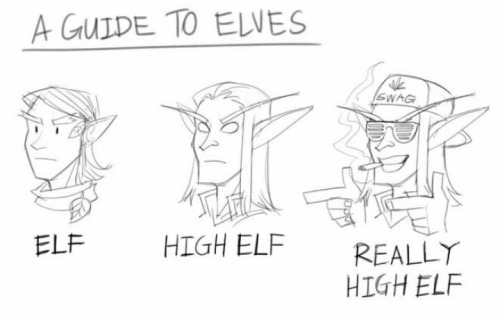 A GUIDE TO ELVES
SWAG
ELF
HIGH ELF
REALLY
HIGH ELF